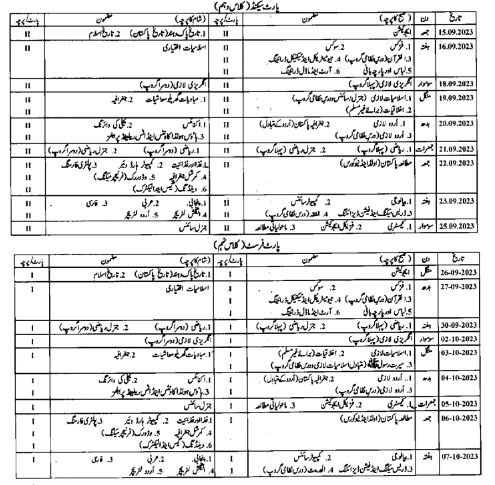 پارٹ سیکنڈ (کلاس دہم)
تاریخ دن صبح کا پرچہ مضمون پارٹ/پرچہ شام کا پرچہ مضمون پارٹ/پرچہ
15.09.2023 جمعہ ایجوکیشن II 1. تاریخ پاک و ہند (تاریخ پاکستان) 2. تاریخ اسلام II
16.09.2023 ہفتہ 1. فزکس 2. سوکس II اسلامیات اختیاری II
3. القرآن (درس نظامی گروپ) 4. جیومیٹریکل اینڈ ٹیکنیکل ڈرائینگ II
5. لباس اور پارچہ بافی 6. آرٹ/ماڈل ڈرائینگ II
18.09.2023 سوموار انگریزی لازمی (پہلا گروپ) II انگریزی لازمی (دوسرا گروپ) II
19.09.2023 منگل 1. اسلامیات لازمی (جنرل سائنس و درس نظامی گروپ) II 1. مبادیات گھریلو معاشیات 2. جغرافیہ II
2. اخلاقیات (برائے غیر مسلم) II
20.09.2023 بدھ 1. اردو لازمی 2. جغرافیہ پاکستان (اردو کے متبادل) II 1. اکنامکس 2. بجلی کی وائرنگ II
3. اردو لازمی (درس نظامی گروپ) II
21.09.2023 جمعرات 1. ریاضی (پہلا گروپ) 2. جنرل ریاضی (پہلا گروپ) II 1. ریاضی (دوسرا گروپ) 2. جنرل ریاضی (دوسرا گروپ) II
22.09.2023 جمعہ مطالعہ پاکستان (اولڈ اینڈ نیو کورس) II 1. غذا اور غذائیت 2. کمپیوٹر ہارڈ ویئر 3. پولٹری فارمنگ II
4. کمرشل جغرافیہ 5. ووڈ ورک (فرنیچر میکنگ) II
6. ویلڈنگ (گیس اینڈ الیکٹرک) II
23.09.2023 ہفتہ 1. بیالوجی 2. کمپیوٹر سائنس II 1. پنجابی 2. عربی 3. فارسی II
3. ڈریس میکنگ اینڈ فیشن ڈیزائننگ 4. فقہ (درس نظامی گروپ) II 4. انگلش لٹریچر 5. اردو لٹریچر II
25.09.2023 سوموار 1. کیمسٹری 2. فزیکل ایجوکیشن 3. ماحولیاتی مطالعہ II جنرل سائنس II
پارٹ فرسٹ (کلاس نہم)
26-09-2023 منگل ایجوکیشن I 1. تاریخ پاک و ہند (تاریخ پاکستان) 2. تاریخ اسلام I
27-09-2023 بدھ 1. فزکس 2. سوکس I اسلامیات اختیاری I
3. القرآن (درس نظامی گروپ) 4. جیومیٹریکل اینڈ ٹیکنیکل ڈرائینگ I
5. لباس اور پارچہ بافی 6. آرٹ/ماڈل ڈرائینگ I
30-09-2023 ہفتہ 1. ریاضی (پہلا گروپ) 2. جنرل ریاضی (پہلا گروپ) I 1. ریاضی (دوسرا گروپ) 2. جنرل ریاضی (دوسرا گروپ) I
02-10-2023 سوموار انگریزی لازمی (پہلا گروپ) I انگریزی لازمی (دوسرا گروپ) I
03-10-2023 منگل 1. اسلامیات لازمی 2. اخلاقیات (برائے غیر مسلم) I 1. مبادیات گھریلو معاشیات 2. جغرافیہ I
3. سیرت رسول ﷺ (متبادل اسلامیات لازمی و درس نظامی گروپ) I
04-10-2023 بدھ 1. اردو لازمی 2. جغرافیہ پاکستان (اردو کے متبادل) I 1. اکنامکس 2. بجلی کی وائرنگ I
3. اردو لازمی (درس نظامی گروپ) I
05-10-2023 جمعرات 1. کیمسٹری 2. فزیکل ایجوکیشن 3. ماحولیاتی مطالعہ I جنرل سائنس I
06-10-2023 جمعہ مطالعہ پاکستان (اولڈ اینڈ نیو کورس) I 1. غذا اور غذائیت 2. کمپیوٹر ہارڈ ویئر 3. پولٹری فارمنگ I
4. کمرشل جغرافیہ 5. ووڈ ورک (فرنیچر میکنگ) I
6. ویلڈنگ (گیس اینڈ الیکٹرک) I
07-10-2023 ہفتہ 1. بیالوجی 2. کمپیوٹر سائنس I 1. پنجابی 2. عربی 3. فارسی I
3. ڈریس میکنگ اینڈ فیشن ڈیزائننگ 4. (درس نظامی گروپ) I 4. انگلش لٹریچر 5. اردو لٹریچر I